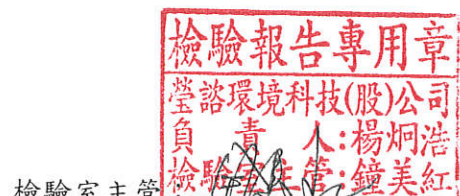 檢驗報告專用章
瑩諮環境科技(股)公司
負責人:楊炯浩
檢驗室主管:鐘美紅
檢驗室主管: